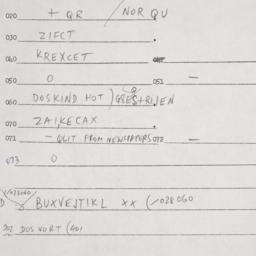 020 + QR / NOR QU
030 ZIFCT
040 KREXCET
050 0 051 —
060 DOSKIND HOT)
070 ZAIKECAX
071 — QUIT FROM NEWSPAPERS 072 —
073 0
BUXVEJTIKL XX (/028060
DOS VORT (401